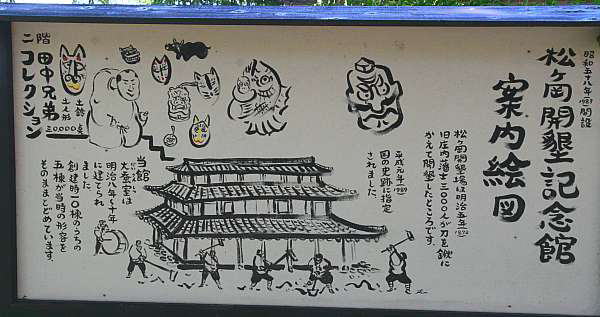 昭和五十八年(1983)開設
松ヶ岡開墾記念館
案内絵図
松ヶ岡開墾場は明治五年(1872)
旧庄内藩士三〇〇〇人が刀を鍬に
かえて開墾したところです。
平成元年(1989)
国の史跡に指定
されました。
当館
大蚕室は
明治八年〜十年
に建てられ
ました。
創建時一〇棟のうちの
五棟が当時の形容を
そのままとどめています。
二階
田中兄弟
コレクション
土鈴
土人形
三〇〇〇〇点